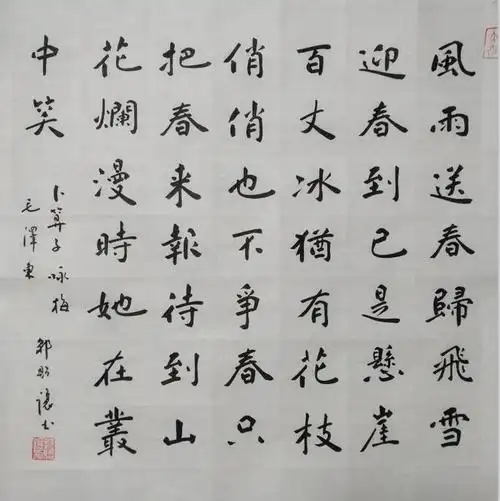 風雨送春歸飛雪
迎春到已是懸崖
百丈冰猶有花枝
俏俏也不爭春只
把春来報待到山
花爛漫時她在叢
中笑
卜算子 詠梅
毛澤東
书